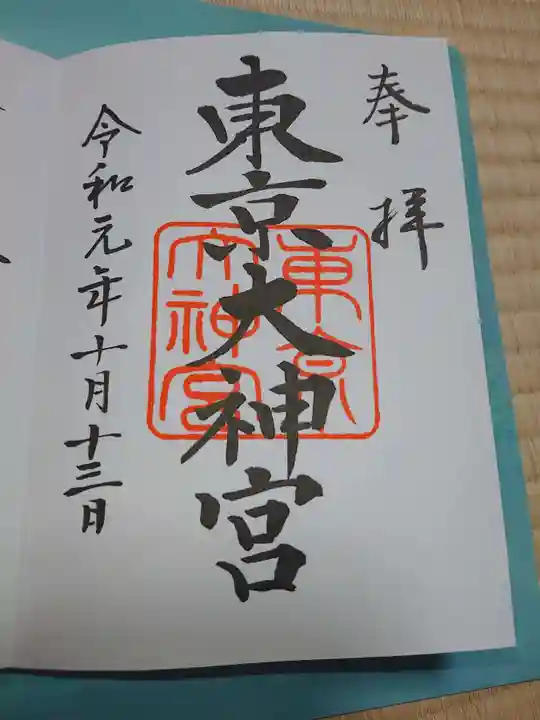 奉拝
東京大神宮
東京
大神宮
令和元年十月十三日